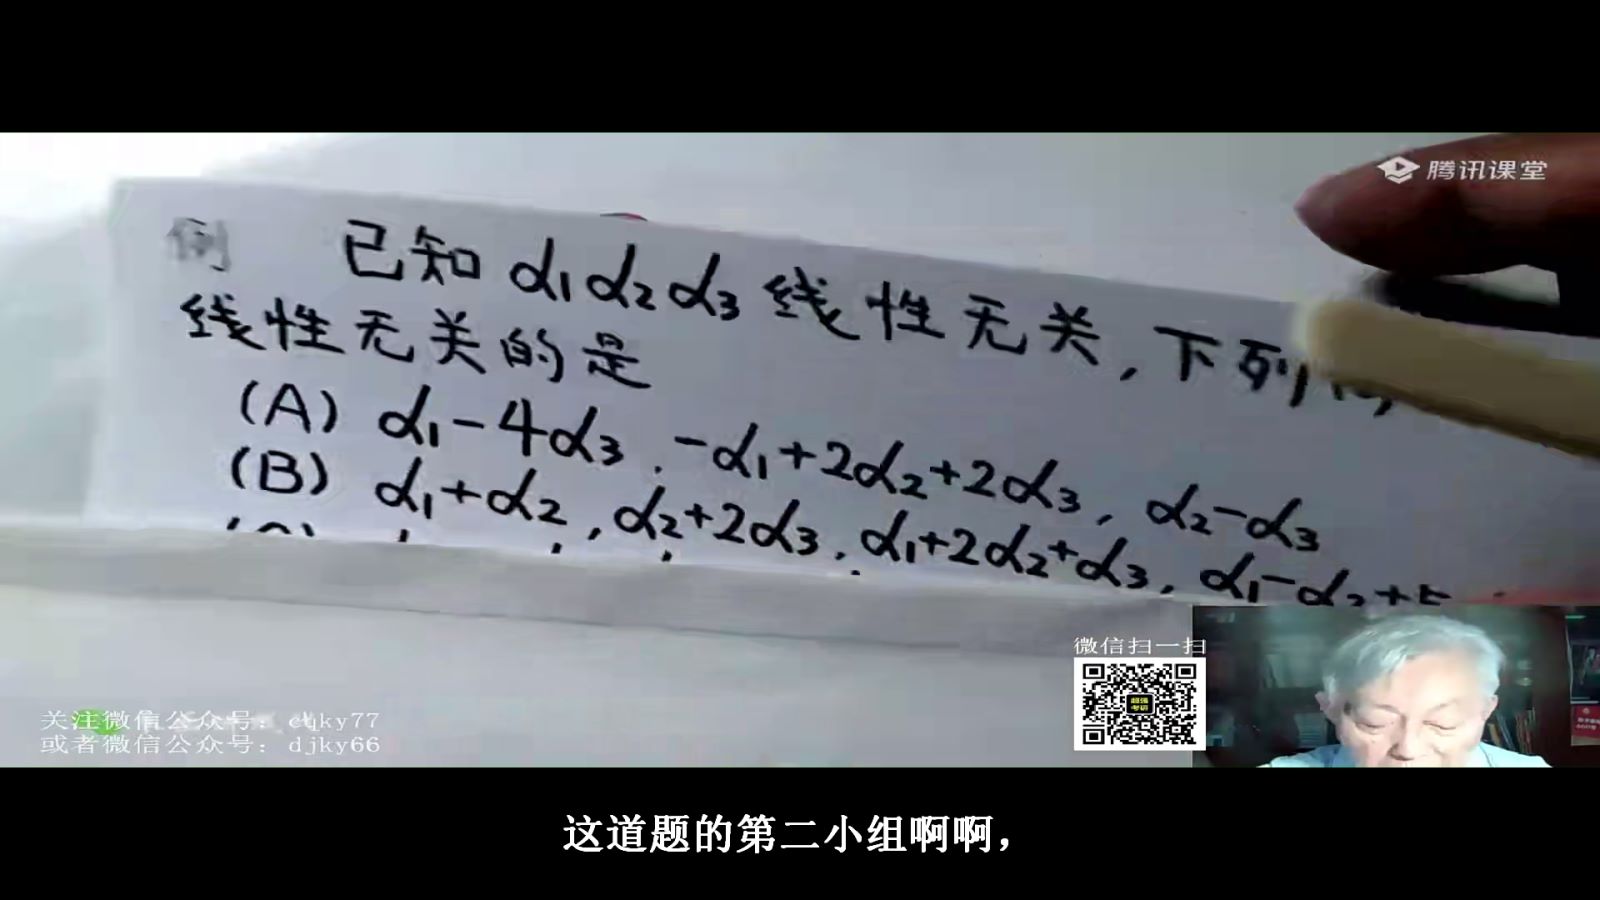 腾讯课堂
例 已知 α1 α2 α3 线性无关, 下列
线性无关的是
(A) α1-4α3, -α1+2α2+2α3, α2-α3
(B) α1+α2, α2+2α3, α1+2α2+α3, α1-α2+5
微信扫一扫
关注微信公众号: cqky77
或者微信公众号: djky66
这道题的第二小组啊啊，